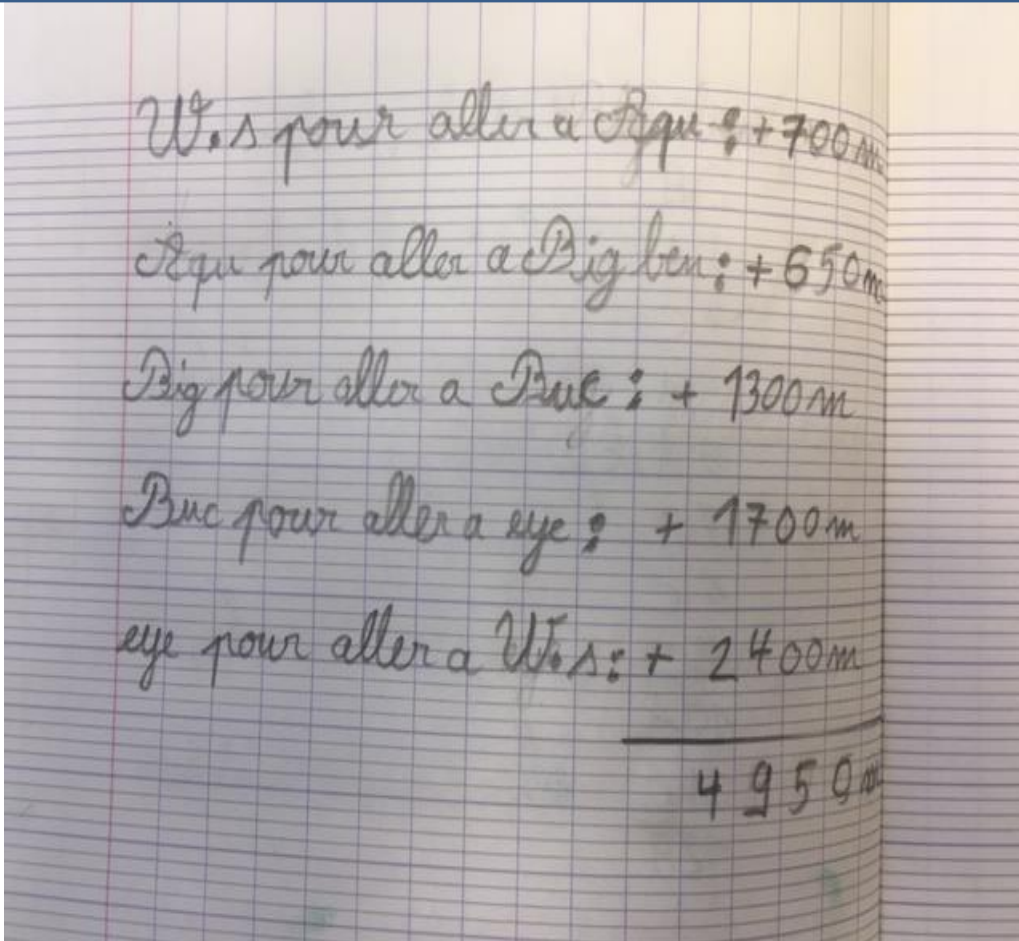 W.s pour aller a Aqu : +700m
Aqu pour aller a Big ben : + 650m
Big pour aller a Buc : + 1300m
Buc pour aller a eye : + 1700m
eye pour aller a W.s : + 2400m
4950m